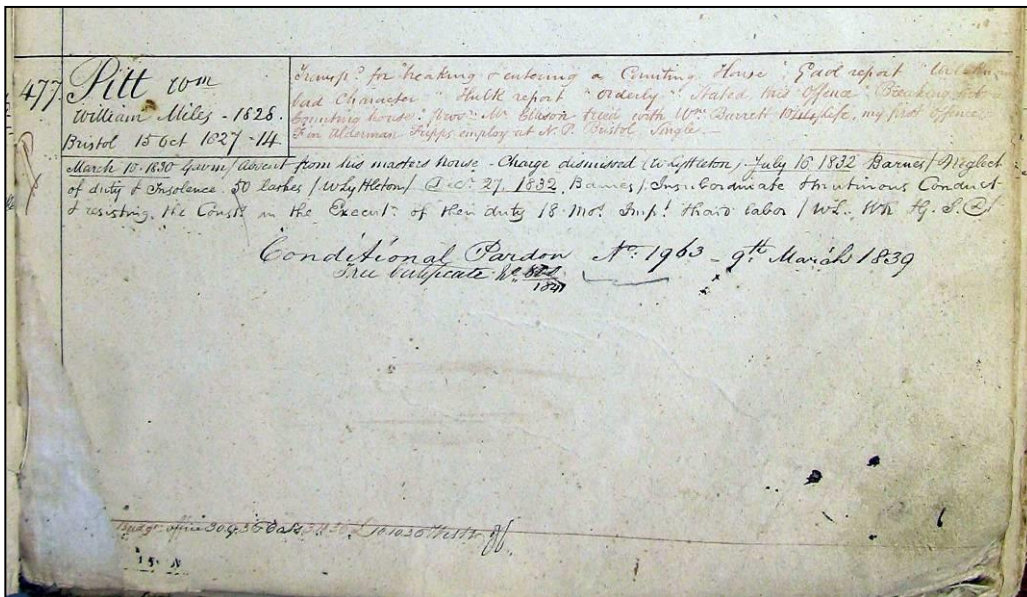 477 Pitt Wm
William Miles - 1828.
Bristol 15 Oct 1827 - 14
Transpd. for breaking & entering a Counting House; Gaol report
bad Character" Hulk report "orderly". Stated this Offence "Breaking into a
Counting house. Pros: Mr. tried with Wm. Barrett my first offence
F in Alderman Fripps employ at N.P. Bristol Single.-
March 10. 1830 / Absent from his masters house - Charge dismissed (W Lyttleton) July 16 1832 Barnes / Neglect
of duty & Insolence. 50 lashes / W Lyttleton / Decr. 27. 1832 Barnes / Insubordinate & mutinous Conduct
& resisting the Consts. in the Executn. of their duty 18 Mos. Impt. & hard labor / WL.
Conditional Pardon No. 1963 - 9th. March 1839
Free Certificate No.
1841
office